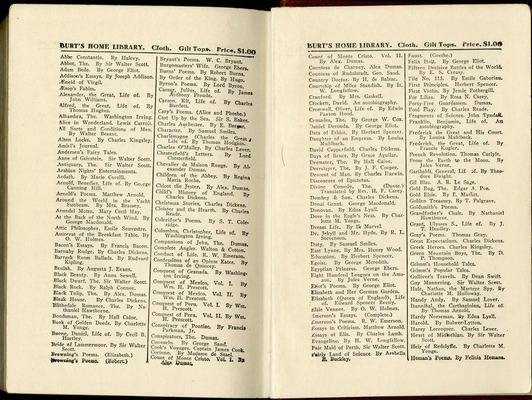 BURT'S HOME LIBRARY. Cloth. Gilt Tops. Price, $1.00
Abbe Constantin. By Halevy.
Abbot, The. By Sir Walter Scott.
Adam Bede. By George Eliot.
Addison's Essays. By Joseph Addison.
Æneid of Virgil.
Æsop's Fables.
Alexander, the Great, Life of. By
John Williams.
Alfred, the Great, Life of. By
Thomas Hughes.
Alhambra, The. Washington Irving.
Alice in Wonderland. Lewis Carroll.
All Sorts and Conditions of Men.
By Walter Besant.
Alton Locke. By Charles Kingsley.
Amiel's Journal.
Andersen's Fairy Tales.
Anne of Geierstein. Sir Walter Scott.
Antiquary, The. Sir Walter Scott.
Arabian Nights' Entertainments.
Ardath. By Marie Corelli.
Arnold, Benedict, Life of. By George
Canning Hill.
Arnold's Poems. Matthew Arnold.
Around the World in the Yacht
Sunbeam. By Mrs. Brassey.
Arundel Motto. Mary Cecil Hay.
At the Back of the North Wind. By
George Macdonald.
Attic Philosopher. Emile Souvestre.
Autocrat of the Breakfast Table. By
O. W. Holmes.
Bacon's Essays. By Francis Bacon.
Barnaby Rudge. By Charles Dickens.
Barrack Room Ballads. By Rudyard
Kipling.
Beulah. By Augusta J. Evans.
Black Beauty. By Anna Sewall.
Black Dwarf, The. Sir Walter Scott.
Black Rock. By Ralph Connor.
Black Tulip, The. By Alex. Dumas.
Bleak House. By Charles Dickens.
Blithedale Romance, The. By Nathaniel Hawthorne.
Bondman, The. By Hall Caine.
Book of Golden Deeds. By Charlotte
M. Yonge.
Boone, Daniel, Life of. By Cecil B.
Hartley.
Bride of Lammermoor. By Sir Walter
Scott.
Browning's Poems. (Elizabeth.)
Browning's Poems. (Robert.)
Bryant's Poems. W. C. Bryant.
Burgomaster's Wife. George Ebers.
Burns' Poems. By Robert Burns.
By Order of the King. By Hugo.
Byron's Poems. By Lord Byron.
Caesar, Julius, Life of. By James
Anthony Froude.
Carson, Kit, Life of. By Charles
Burdett.
Cary's Poems. (Alice and Phoebe.)
Cast Up by the Sea. Sir S. Baker.
Character. By Samuel Smiles.
Charlemagne (Charles the Great),
Life of. By Thomas Hodgkin.
Charles O'Malley. By Charles Lever.
Chesterfield's Letters. By Lord
Chesterfield.
Chevalier de Maison Rouge. By Alexander Dumas.
Children of the Abbey. By Regina
Maria Roche.
Chicot the Jester. By Alex. Dumas.
Child's History of England. By
Charles Dickens.
Christmas Stories. Charles Dickens.
Cloister and the Hearth. By Charles
Reade.
Coleridge's Poems. By S. T. Coleridge.
Columbus, Christopher, Life of. By
Washington Irving.
Companions of Jehu, The. Dumas.
Complete Angler. Walton & Cotton.
Conduct of Life. R. W. Emerson.
Confessions of an Opium Eater. By
Thomas de Quincey.
Conquest of Granada. By Washington Irving.
Conquest of Mexico, Vol. I. By
Wm. H. Prescott.
Conquest of Mexico, Vol. II. By
Wm. H. Prescott.
Conquest of Peru, Vol. I. By Wm.
H. Prescott.
Conquest of Peru, Vol. II. By Wm.
H. Prescott.
Conspiracy of Pontiac. By Francis
Parkman, Jr.
Conspirators, The. Dumas.
Consuelo. By George Sand.
Cook's Voyages. Captain James Cook.
Corinne. By Madame de Stael.
Count of Monte Cristo, Vol. I. By
Alex. Dumas.
BURT'S HOME LIBRARY. Cloth. Gilt Tops. Price, $1.00
Count of Monte Cristo, Vol. II.
By Alex. Dumas.
Countess de Charney. Alex Dumas.
Countess of Rudolstadt. Geo. Sand.
Country Doctor. By H. de Balzac.
Courtship of Miles Standish. By H.
W. Longfellow.
Cranford. By Mrs. Gaskell.
Crockett, David. An autobiography.
Cromwell, Oliver, Life of. By Edwin
Paxton Hood.
Crusades, The. By George W. Cox.
Daniel Deronda. By George Eliot.
Data of Ethics. By Herbert Spencer.
Daughter of an Empress. By Louisa
Muhlbach.
David Copperfield. Charles Dickens.
Days of Bruce. By Grace Aguilar.
Deemster, The. By Hall Caine.
Deerslayer, The. By J. F. Cooper.
Descent of Man. By Charles Darwin.
Discourses of Epictetus.
Divine Comedy, The. (Dante.)
Translated by Rev. H. F. Carey.
Dombey & Son. Charles Dickens.
Donal Grant. George Macdonald.
Donovan. By Edna Lyall.
Dove in the Eagle's Nest. By Charlotte M. Yonge.
Dream Life. By Ik Marvel.
Dr. Jekyll and Mr. Hyde. By R. L.
Stevenson.
Duty. By Samuel Smiles.
East Lynne. By Mrs. Henry Wood.
Education. By Herbert Spencer.
Egoist. By George Meredith.
Egyptian Princess. George Ebers.
Eight Hundred Leagues on the Amazon. By Jules Verne.
Eliot's Poems. By George Eliot.
Elizabeth and Her German Garden.
Elizabeth (Queen of England), Life
of. Edward Spencer Beesly.
Elsie Venner. By O. W. Holmes.
Emerson's Essays. (Complete.)
Emerson's Poems. R. W. Emerson.
Essays in Criticism. Matthew Arnold.
Essays of Elia. By Charles Lamb.
Evangeline. By H. W. Longfellow.
Fair Maid of Perth. Sir Walter Scott.
Fairly Land of Science. By Arabella
B. Buckley.
Faust. (Goethe.)
Felix Holt. By George Eliot.
Fifteen Decisive Battles of the World.
By E. S. Creasy.
File No. 113. By Emile Gaboriau.
First Principles. Herbert Spencer.
First Violin. By Jessie Fothergill.
For Lilias. By Rosa N. Carey.
Forty-Five Guardsmen. Dumas.
Foul Play. By Charles Reade.
Fragments of Science. John Tyndall.
Franklin, Benjamin, Life of. An
autobiography.
Frederick the Great and His Court.
By Louisa Muhlbach.
Frederick, the Great, Life of. By
Francis Kugler.
French Revolution. Thomas Carlyle.
From the Earth to the Moon. By
Jules Verne.
Garibaldi, General, Life of. By Theodore Dwight.
Gil Blas. A. R. Le Sage.
Gold Bug, The. Edgar A. Poe.
Gold Elsie. By E. Marlitt.
Golden Treasury. By T. Palgrave.
Goldsmith's Poems.
Grandfather's Chair. By Nathaniel
Hawthorne.
Grant, Ulysses S., Life of. By J.
T. Headley.
Gray's Poems. Thomas Gray.
Great Expectations. Charles Dickens.
Greek Heroes. Charles Kingsley.
Green Mountain Boys, The. By D.
P. Thompson.
Grimm's Household Tales.
Grimm's Popular Tales.
Gulliver's Travels. By Dean Swift.
Guy Mannering. Sir Walter Scott.
Hale, Nathan, the Martyr Spy. By
Charlotte M. Holloway.
Handy Andy. By Samuel Lover.
Hannibal, the Carthaginian, Life of.
By Thomas Arnold.
Hardy Norseman. By Edna Lyall.
Harold. By Bulwer-Lytton.
Harry Lorrequer. Charles Lever.
Heart of Midlothian. By Sir Walter
Scott.
Heir of Redclyffe. By Charlotte M.
Yonge.
Heman's Poems. By Felicia Hemans.